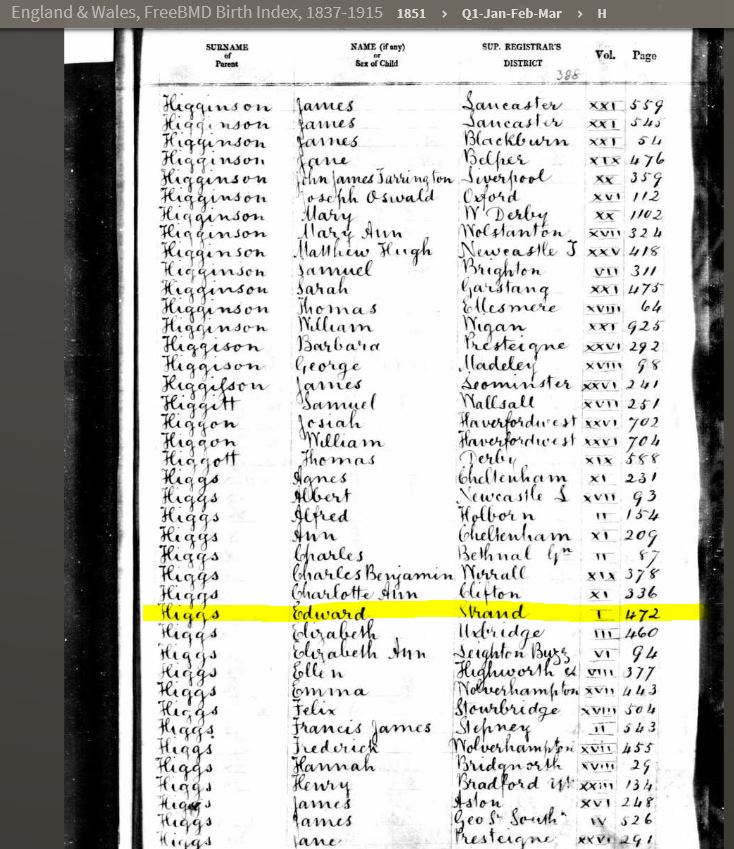 England & Wales, FreeBMD Birth Index, 1837-1915 1851 › Q1-Jan-Feb-Mar › H
SURNAME of Parent NAME (if any) or Sex of Child SUP. REGISTRAR'S DISTRICT Vol. Page
388
Higginson James Lancaster XXI 559
Higginson James Lancaster XXI 545
Higginson James Blackburn XXI 54
Higginson Jane Belper XIX 476
Higginson John James Tarrington Liverpool XX 359
Higginson Joseph Oswald Oxford XVI 112
Higginson Mary W Derby XX 1102
Higginson Mary Ann Wolstanton XVII 324
Higginson Matthew Hugh Newcastle T XXV 418
Higginson Samuel Brighton VII 311
Higginson Sarah Garstang XXI 475
Higginson Thomas Ellesmere XVIII 64
Higginson William Wigan XXI 925
Higgison Barbara Presteigne XXVI 292
Higgison George Madeley XVIII 98
Higgisson James Leominster XXVI 241
Higgitt Samuel Wallsall XVII 251
Higgon Josiah Haverfordwest XXVI 702
Higgon William Haverfordwest XXVI 704
Higgott Thomas Derby XIX 588
Higgs Agnes Cheltenham XI 231
Higgs Albert Newcastle XVII 93
Higgs Alfred Holborn II 154
Higgs Ann Cheltenham XI 209
Higgs Charles Bethnal Gn II 87
Higgs Charles Benjamin Wirrall XIX 378
Higgs Charlotte Ann Clifton XI 336
Higgs Edward Strand I 472
Higgs Elizabeth Uxbridge III 460
Higgs Elizabeth Ann Leighton Buzz VI 94
Higgs Ellen Highworth &c VIII 377
Higgs Emma Wolverhampton XVII 443
Higgs Felix Stourbridge XVIII 504
Higgs Francis James Stepney II 543
Higgs Frederick Wolverhampton XVII 455
Higgs Hannah Bridgnorth XVIII 29
Higgs Henry Bradford XXIII 134
Higgs James Aston XVI 248
Higgs James Geo St South IV 526
Higgs Jane Presteigne XXVI 291